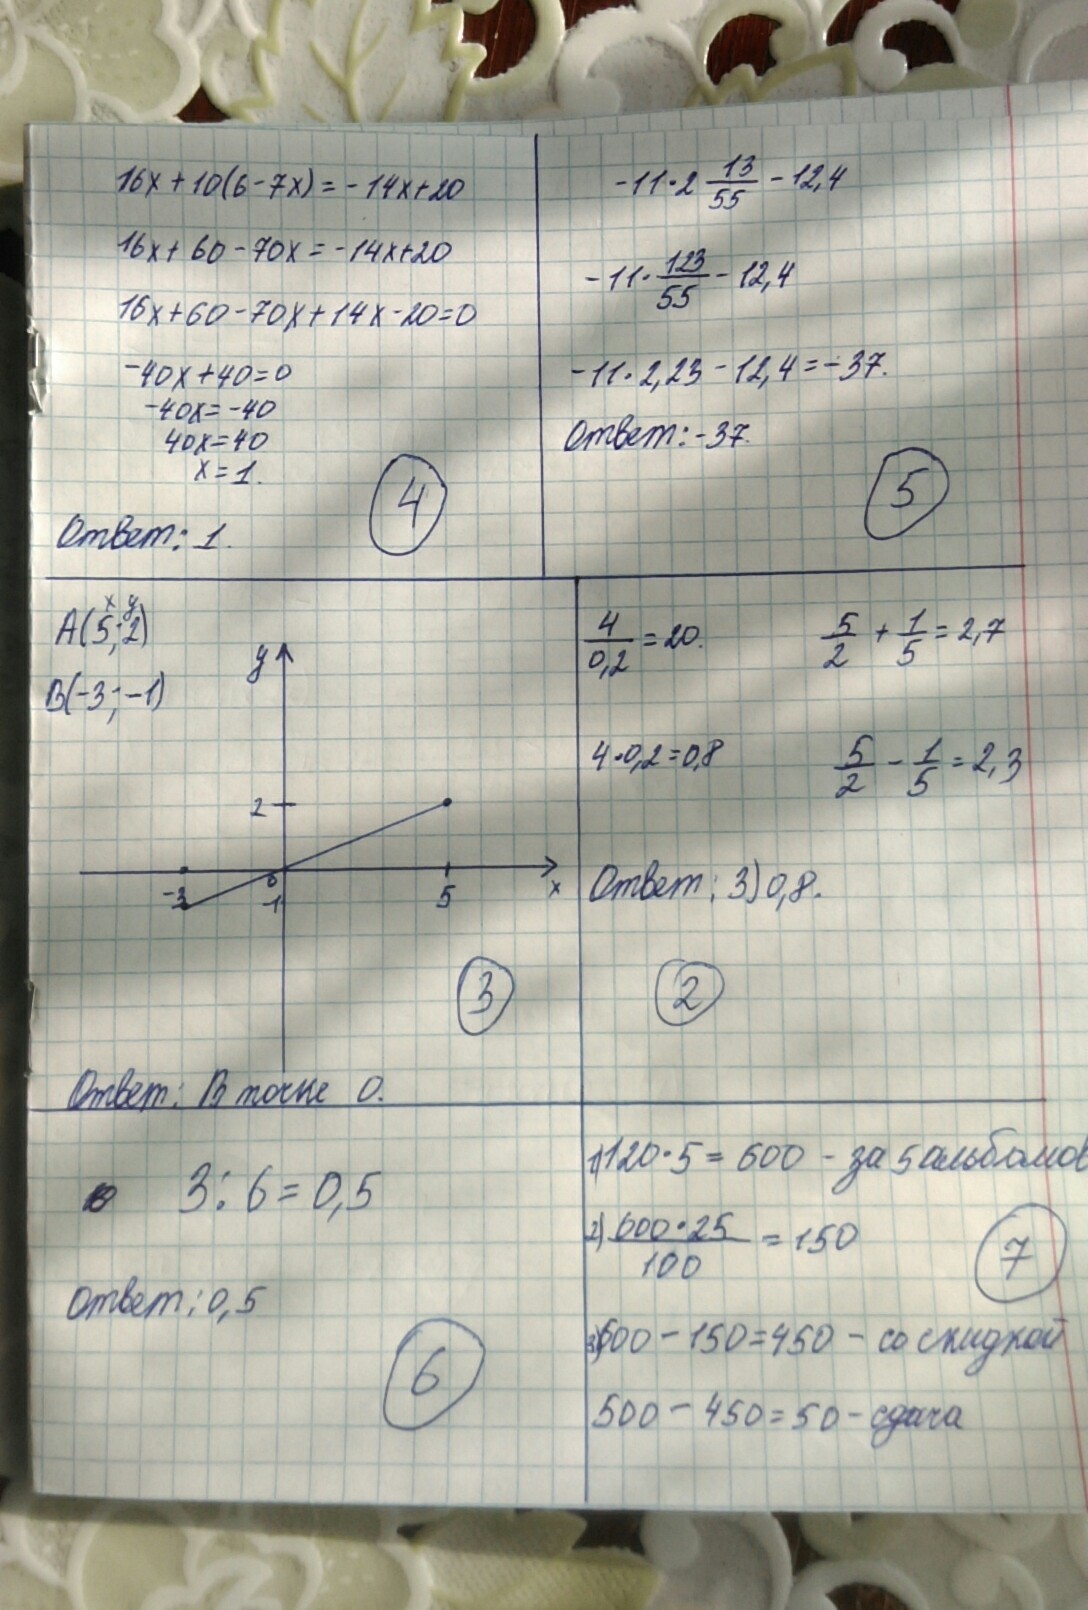 16x+10(6-7x)=-14x+20
16x+60-70x=-14x+20
16x+60-70x+14x-20=0
-40x+40=0
-40x=-40
40x=40
x=1.
4
Ответ: 1.
-11·2 13/55 -12,4
-11·123/55 -12,4
-11·2,23-12,4=-37.
Ответ: -37.
5
x y
A(5;2)
B(-3;-1)
y
2
-3
0
-1
5
x
3
Ответ: В точке 0.
4/0,2 =20.
5/2 + 1/5 =2,7
4·0,2=0,8
5/2 - 1/5 =2,3
Ответ: 3) 0,8.
2
3:6=0,5
Ответ: 0,5
6
1) 120·5=600 - за 5 альбомов
2) 600·25/100 =150
7
3) 600-150=450 - со скидкой
500-450=50 - сдача